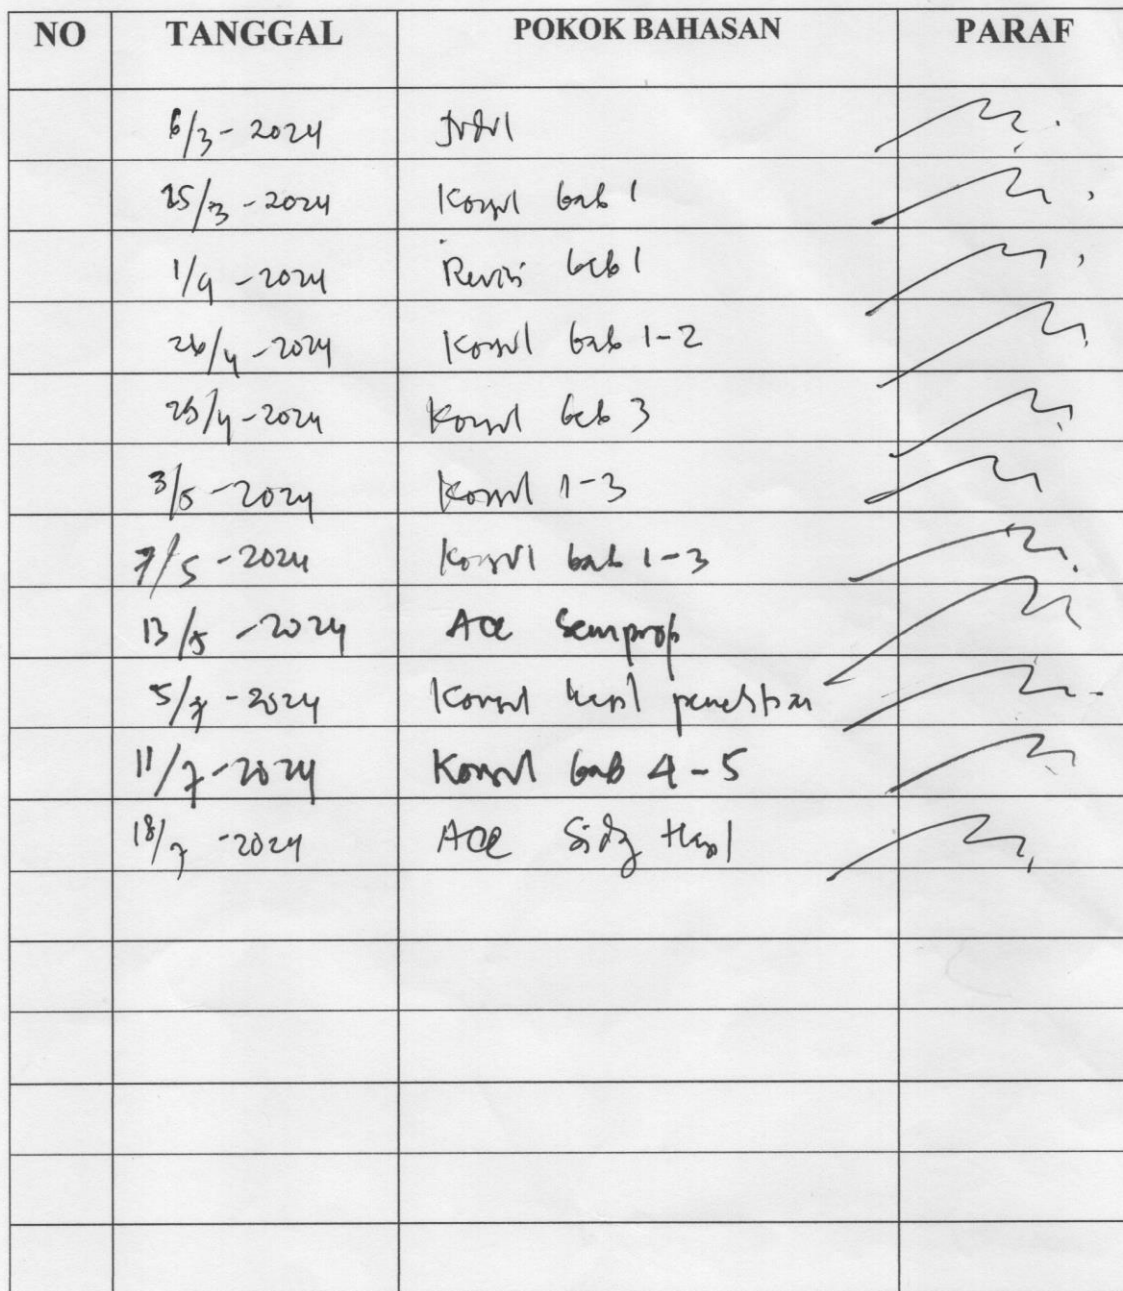 NO TANGGAL POKOK BAHASAN PARAF
6/3 - 2024 Judul
25/3 - 2024 Konsul bab 1
1/4 - 2024 Revisi bab 1
26/4 - 2024 Konsul bab 1-2
/4 - 2024 Konsul bab 3
3/5 - 2024 Konsul 1-3
7/5 - 2024 Konsul bab 1-3
13/5 - 2024 Acc Semprop
5/7 - 2024 Konsul hasil penelitian
11/7 - 2024 Konsul bab 4-5
18/7 - 2024 Acc Sidg Hasil